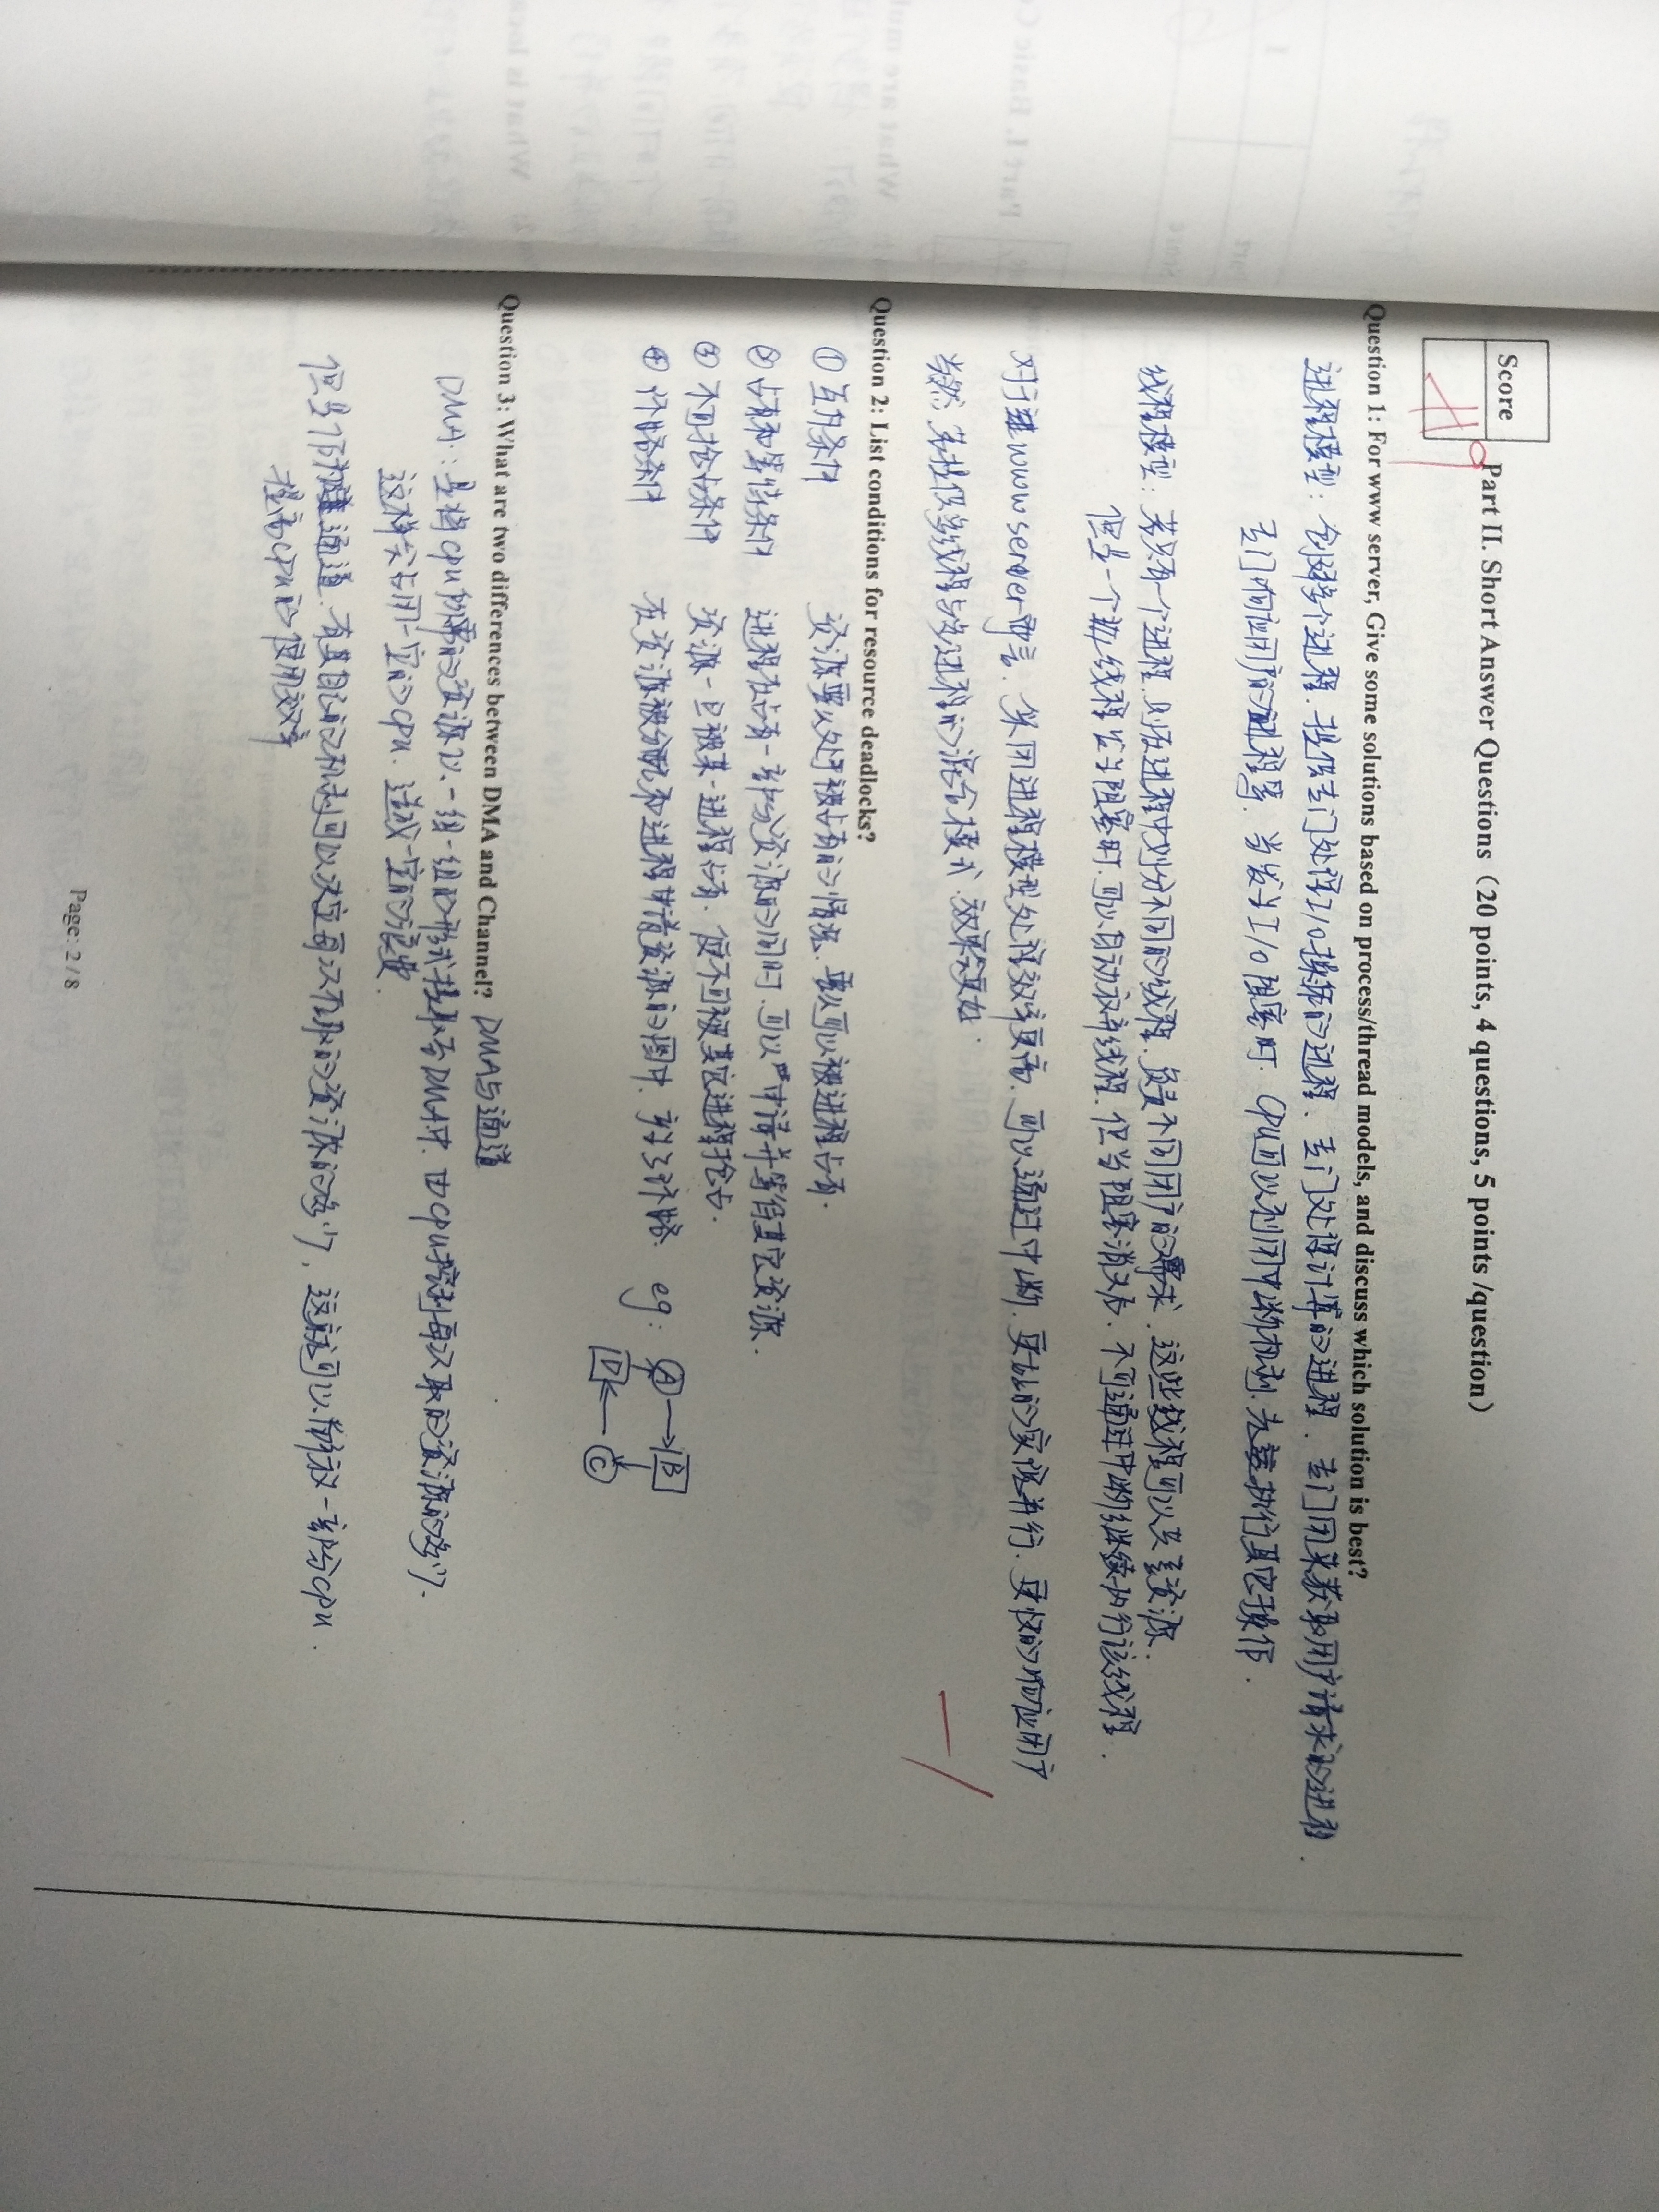 Score
19
Part II. Short Answer Questions（20 points, 4 questions, 5 points /question）
Question 1: For www server, Give some solutions based on process/thread models, and discuss which solution is best?
进程模型: 创建多个进程. 提供专门处理I/O操作的进程、专门处理计算的进程、专门用来获取用户请求的进程、
专门响应用户的进程等. 当发生I/O阻塞时. CPU可以利用中断机制. 先去执行其它操作.
线程模型: 若只有一个进程. 则在进程中划分不同的线程. 负责不同用户的需求. 这些线程可以共享资源.
但是一个线程发生阻塞时. 可以自动放弃线程. 但当阻塞消义后. 不可通过中断继续执行该线程.
对于www server而言. 采用进程模型处理效率更高. 可以通过中断. 更好的实现并行. 更快的响应用户
当然. 若提供多线程与多进程的混合模式. 效果会更好.
-1
Question 2: List conditions for resource deadlocks?
① 互斥条件 资源要么处于被占有的情况. 要么可以被进程占有.
② 占有和等待条件 进程在占有一部分资源的同时. 可以申请并等待其它资源.
③ 不可抢占条件 资源一旦被某一进程占有. 便不可被其它进程抢占.
④ 环路条件 在资源被分配和进程申请资源的图中. 产生了环路. eg:
A B
D C
Question 3: What are two differences between DMA and Channel? DMA与通道
DMA: 是将CPU所需的资源以一组一组的形式提取至DMA中. 由CPU控制每次取的资源的多少.
这样会占用一定的CPU. 造成一定的浪费.
但是作为通道. 有其自己的机制可以决定每次存取的资源的多少, 这就可以解放一部分CPU.
提高CPU的使用效率
Page: 2 / 8